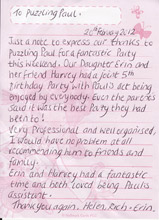 To Puzzling Paul.
20th May 2012
Just a note to express our thanks to
Puzzling Paul for a fantastic Party
this weekend. Our Daughter Erin and
her friend Harvey had a joint 5th
Birthday Party with Paul's act being
enjoyed by everybody. Even the parents
said it was the best Party they had
been to!
Very Professional and well organised,
I would have no problem at all
recommending him to friends and
family.
Erin and Harvey had a fantastic
time and both loved being Paul's
assistants.
Thank you again, Helen, Rich + Erin.